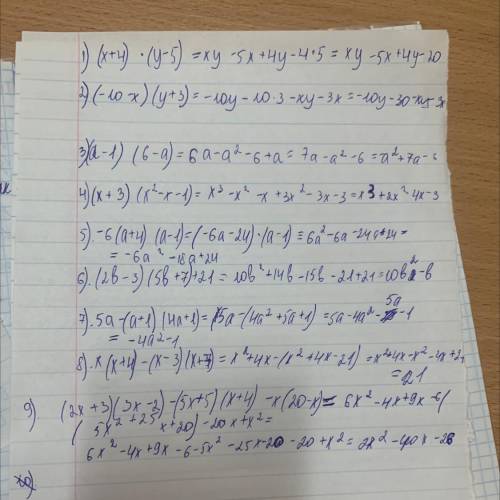 1) (x+4) · (y-5) = xy -5x+4y-4·5 = xy -5x+4y-20
2) (-10-x) (y+3) = -10y -10·3 -xy-3x = -10y-30-xy-3x
3) (a-1) (6-a) = 6a-a²-6+a = 7a-a²-6 = a²+7a-6
4) (x+3) (x²-x-1) = x³-x²-x+3x²-3x-3 = x3+2x²-4x-3
5). -6(a+4) (a-1) = (-6a-24)·(a-1) = 6a²-6a-24a+24 =
= -6a²-18a+24
6). (2b-3) (5b+7)+21 = 10b²+14b-15b-21+21 = 10b²-b
7). 5a-(a+1) (4a+1) = 5a-(4a²+5a+1) = 5a-4a²-5a-1
= -4a²-1
8). x(x+4)-(x-3)(x+7) = x²+4x-(x²+4x-21) = x²+4x-x²-4x+21
= 21
9) (2x+3)(3x-2)-(5x+5)(x+4)-x(20-x) = 6x²-4x+9x-6(
(5x²+25x+20)-20x+x² =
6x²-4x+9x-6-5x²-25x-20-20+x² = 2x²-40x-26